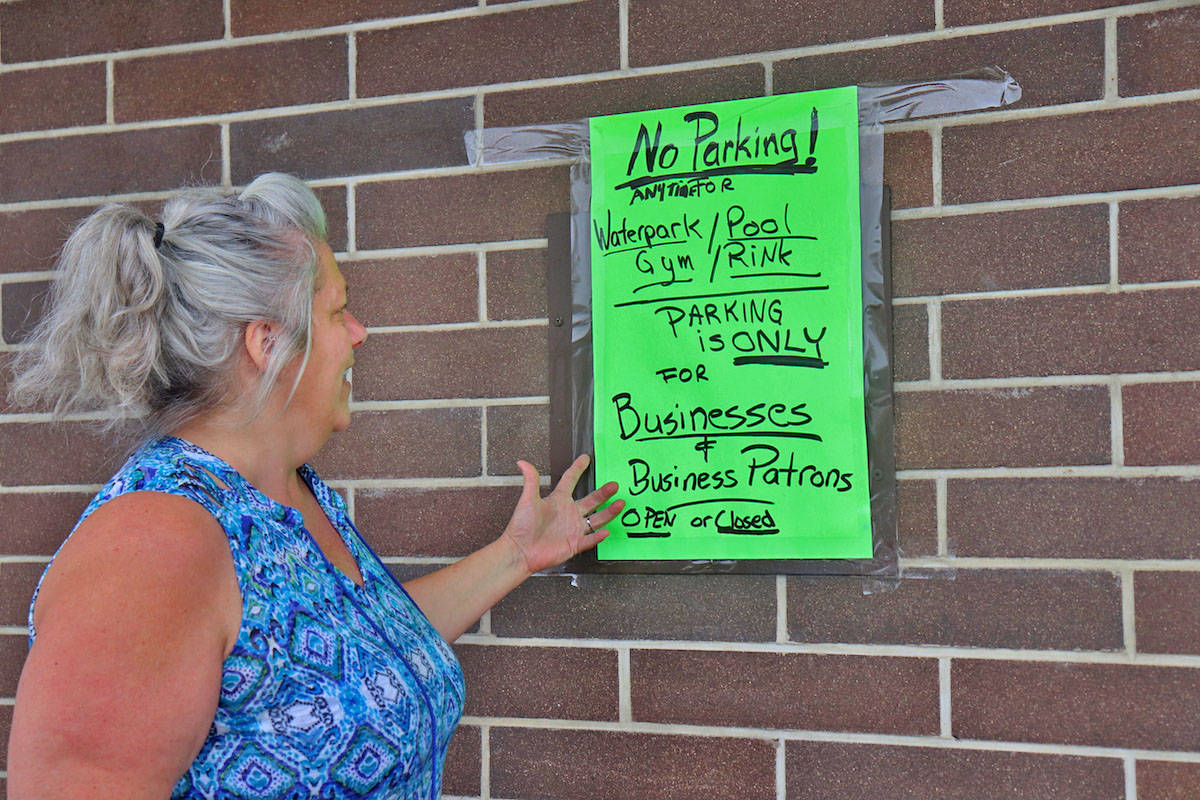 No Parking!
ANYTIME FOR
Waterpark / Pool
Gym / Rink
PARKING
is ONLY
FOR
Businesses
&
Business Patrons
OPEN or Closed